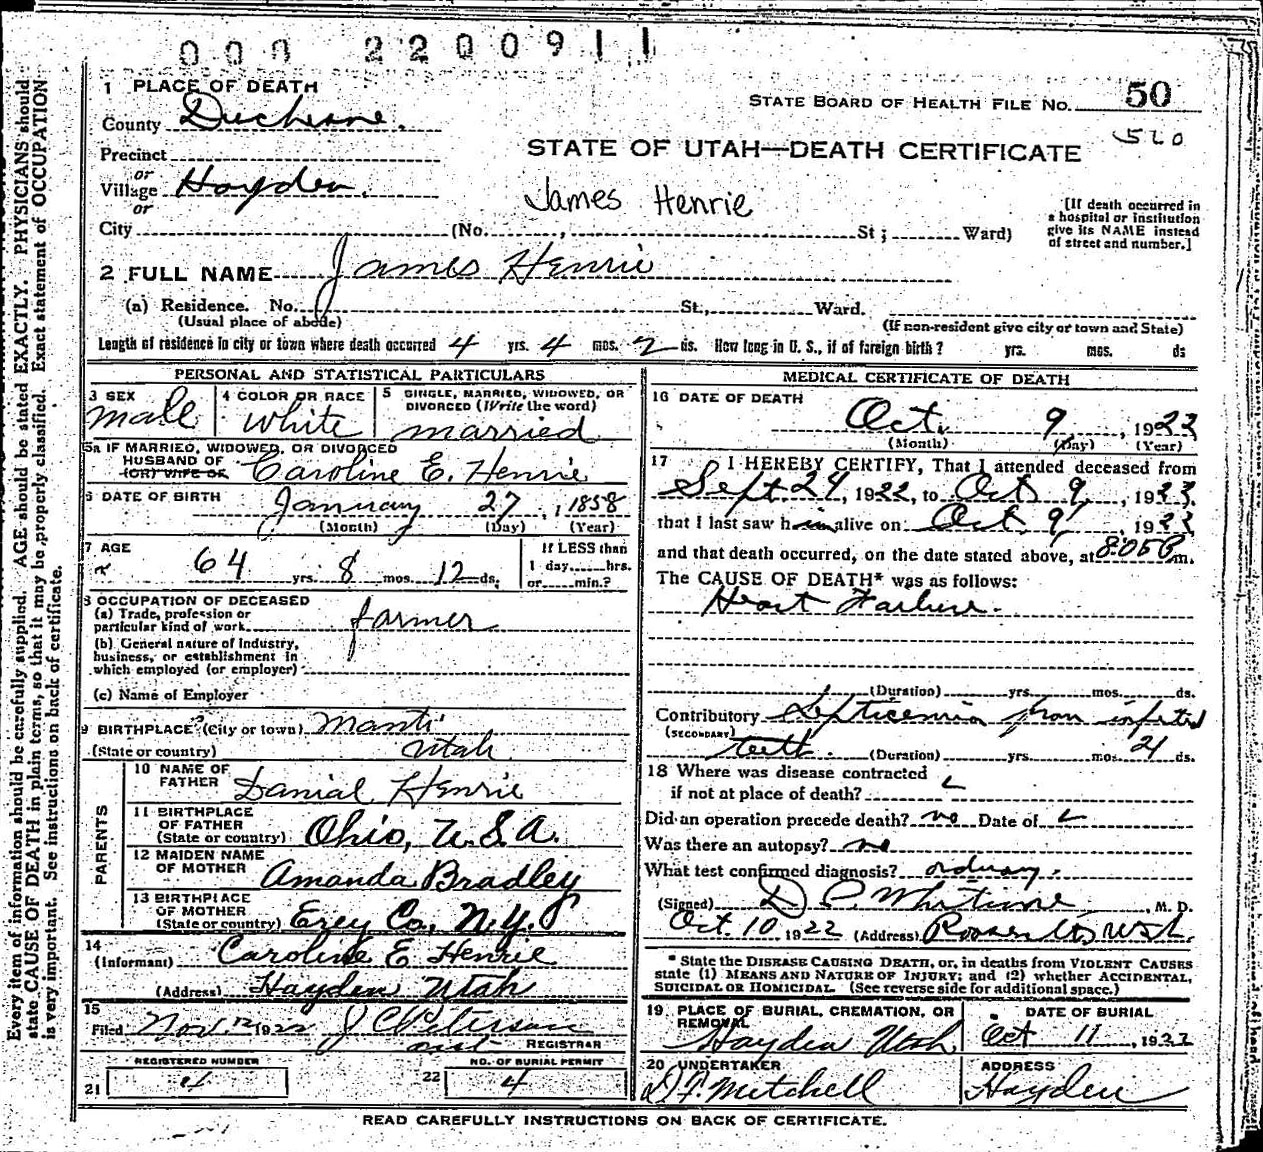 000 2200911
1 PLACE OF DEATH
STATE BOARD OF HEALTH FILE NO. 50
County Duchesne.
520
STATE OF UTAH—DEATH CERTIFICATE
Precinct
or
Village Hayden.
or
James Henrie
[If death occurred in
a hospital or institution
give its NAME instead
of street and number.]
City (No. , St; Ward)
2 FULL NAME James Henrie
(a) Residence. No. St., Ward.
(Usual place of abode) (If non-resident give city or town and State)
Length of residence in city or town where death occurred 4 yrs. 4 mos. 2 ds. How long in U. S., if of foreign birth? yrs. mos. ds
PERSONAL AND STATISTICAL PARTICULARS
3 SEX
male
4 COLOR OR RACE
White
5 SINGLE, MARRIED, WIDOWED, OR
DIVORCED (Write the word)
married
5a IF MARRIED, WIDOWED, OR DIVORCED
HUSBAND OF
(OR) WIFE OF Caroline E. Henrie
6 DATE OF BIRTH January 27, 1858
(Month) (Day) (Year)
7 AGE
64 yrs. 8 mos. 12 ds.
If LESS than
1 day hrs.
or min.?
8 OCCUPATION OF DECEASED
(a) Trade, profession or
particular kind of work. farmer
(b) General nature of Industry,
business, or establishment in
which employed (or employer)
(c) Name of Employer
9 BIRTHPLACE (City or town) Manti
(State or country) Utah
PARENTS
10 NAME OF
FATHER Danial Henrie
11 BIRTHPLACE
OF FATHER
(State or country) Ohio, U.S.A.
12 MAIDEN NAME
OF MOTHER Amanda Bradley
13 BIRTHPLACE
OF MOTHER
(State or country) Erey Co., N.Y.
14
(Informant) Caroline E Henrie
(Address) Hayden Utah
15
Filed Nov 12 1922 J C Peterson
REGISTRAR
REGISTERED NUMBER
21 4
NO. OF BURIAL PERMIT
22 4
MEDICAL CERTIFICATE OF DEATH
16 DATE OF DEATH
Oct. 9, 1922
(Month) (Day) (Year)
17 I HEREBY CERTIFY, That I attended deceased from
Sept 24, 1922, to Oct 9, 1922.
that I last saw him alive on Oct 9, 1922
and that death occurred, on the date stated above, at 8:05 P.m.
The CAUSE OF DEATH* was as follows:
Heart Failure.
(Duration) yrs. mos. ds.
Contributory Septicemia from infected
(SECONDARY)
teeth. (Duration) yrs. mos. 21 ds.
18 Where was disease contracted
if not at place of death?
Did an operation precede death? no Date of
Was there an autopsy? no
What test confirmed diagnosis? ordinary.
(Signed) D P Whitmore, M. D.
Oct. 10 1922 (Address) Roosevelt, Utah.
* State the DISEASE CAUSING DEATH, or, in deaths from VIOLENT CAUSES
state (1) MEANS AND NATURE OF INJURY; and (2) whether ACCIDENTAL,
SUICIDAL OR HOMICIDAL. (See reverse side for additional space.)
19 PLACE OF BURIAL, CREMATION, OR
REMOVAL
Hayden Utah
DATE OF BURIAL
Oct 11, 1922
20 UNDERTAKER
D. F. Mitchell
ADDRESS
Hayden
READ CAREFULLY INSTRUCTIONS ON BACK OF CERTIFICATE.
Every item of information should be carefully supplied. AGE should be stated EXACTLY. PHYSICIANS should
state CAUSE OF DEATH in plain terms, so that it may be properly classified. Exact statement of OCCUPATION
is very important. See instructions on back of certificate.